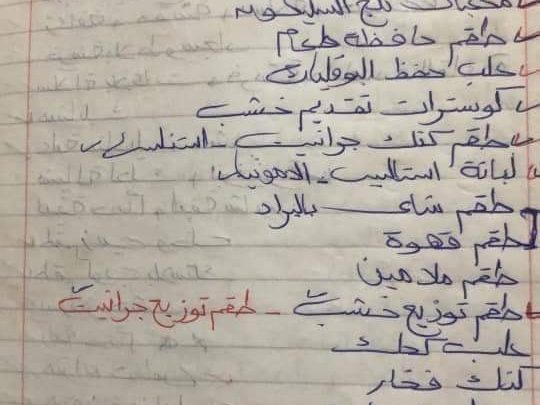 مكعبات ثلج السيليكون
طقم حافظة طعام
علب حفظ البوقليات
كوسترات تقديم خشب
طقم كنك جرانيت - استانلس
لبانة استاليس - الامونيا
طقم شاى بالبراد
طقم قهوة
طقم ملامين
طقم توزيع خشب - طقم توزيع جرانيت
علب كحك
كنك فخار